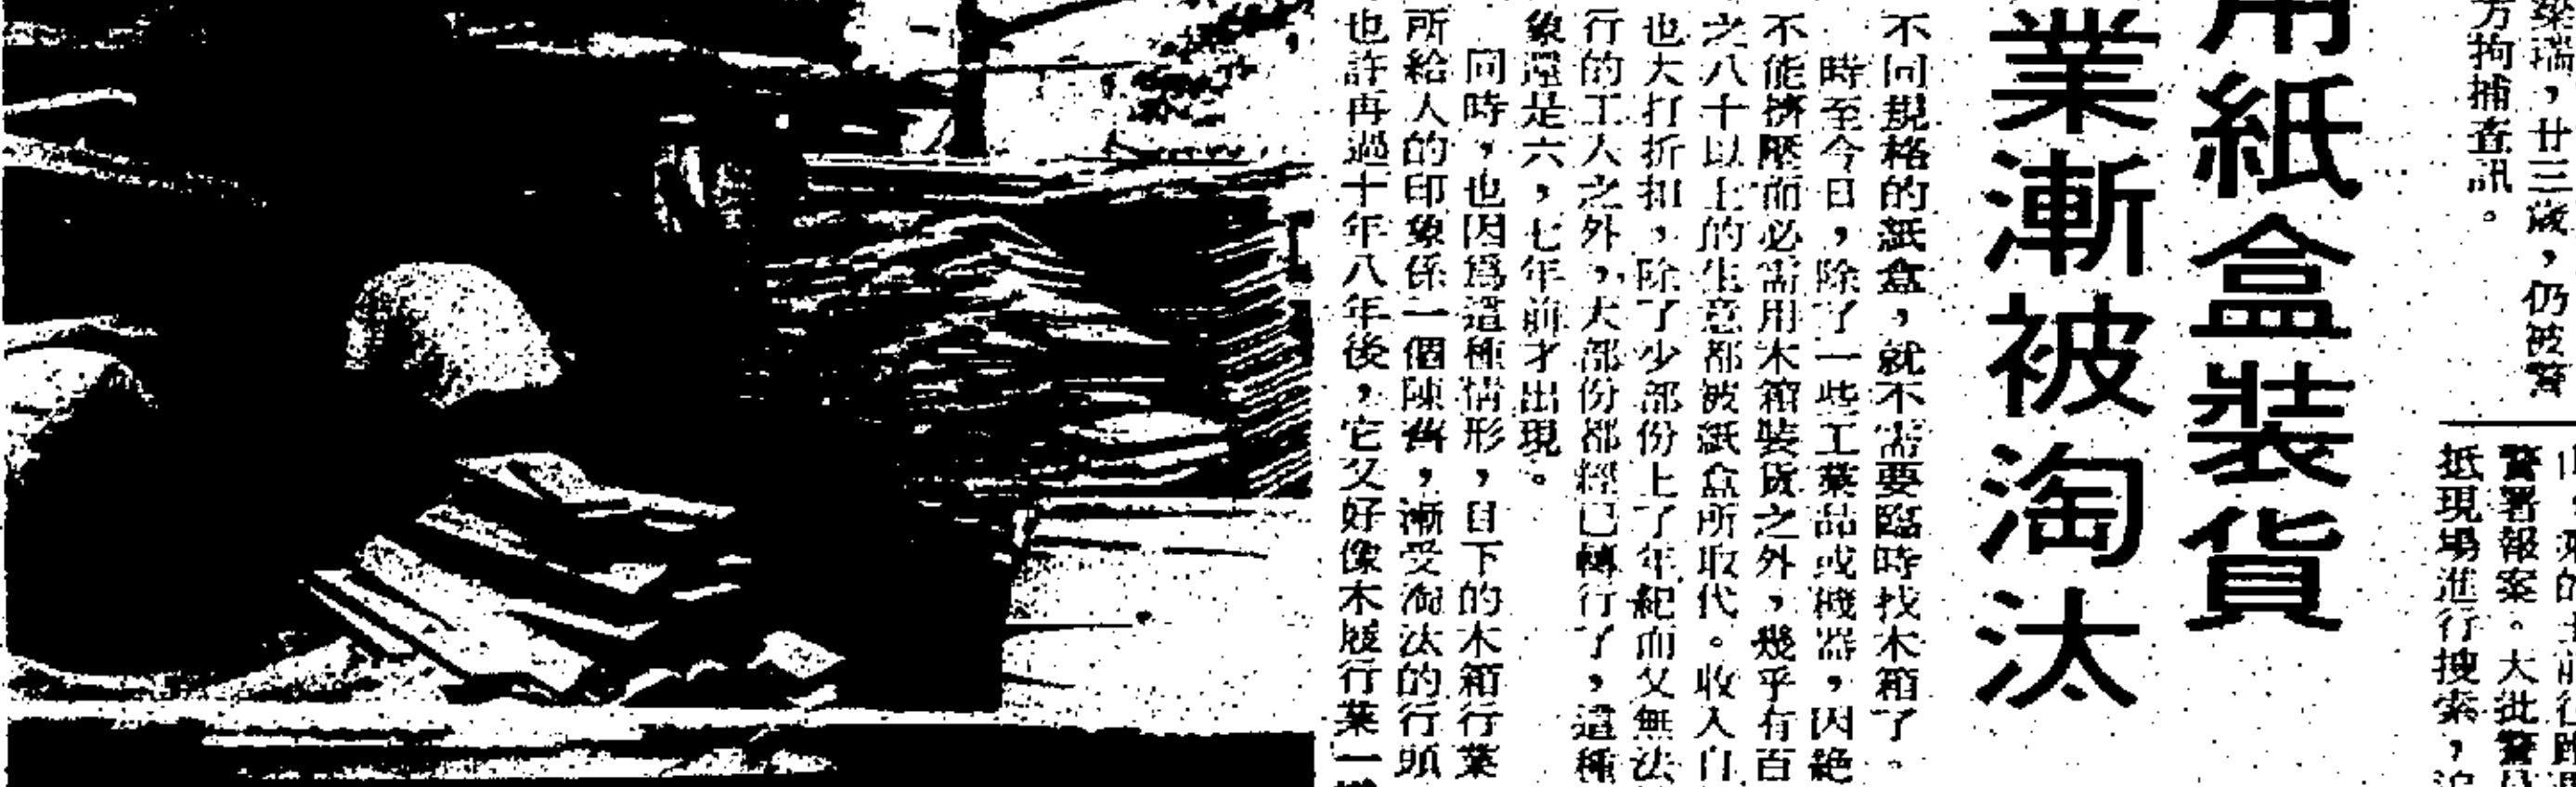 梁瑞，廿三歲，仍被警
方拘捕查訊。
警署報案。大批警員
抵現場進行搜索，追
用紙盒裝貨
業漸被淘汰
不同規格的紙盒，就不需要臨時找木箱了。
時至今日，除了一些工業品或機器，因絕
不能擠壓而必需用木箱裝貨之外，幾乎有百
之八十以上的生意都被紙盒所取代。收入自
也大打折扣，除了少部份上了年紀而又無法
行的工人之外，大部份都經已轉行了，這種
象還是六，七年前才出現。
同時，也因爲這種情形，目下的木箱行業
所給人的印象係一個陳舊，漸受淘汰的行頭
也許再過十年八年後，它又好像木屐行業一樣